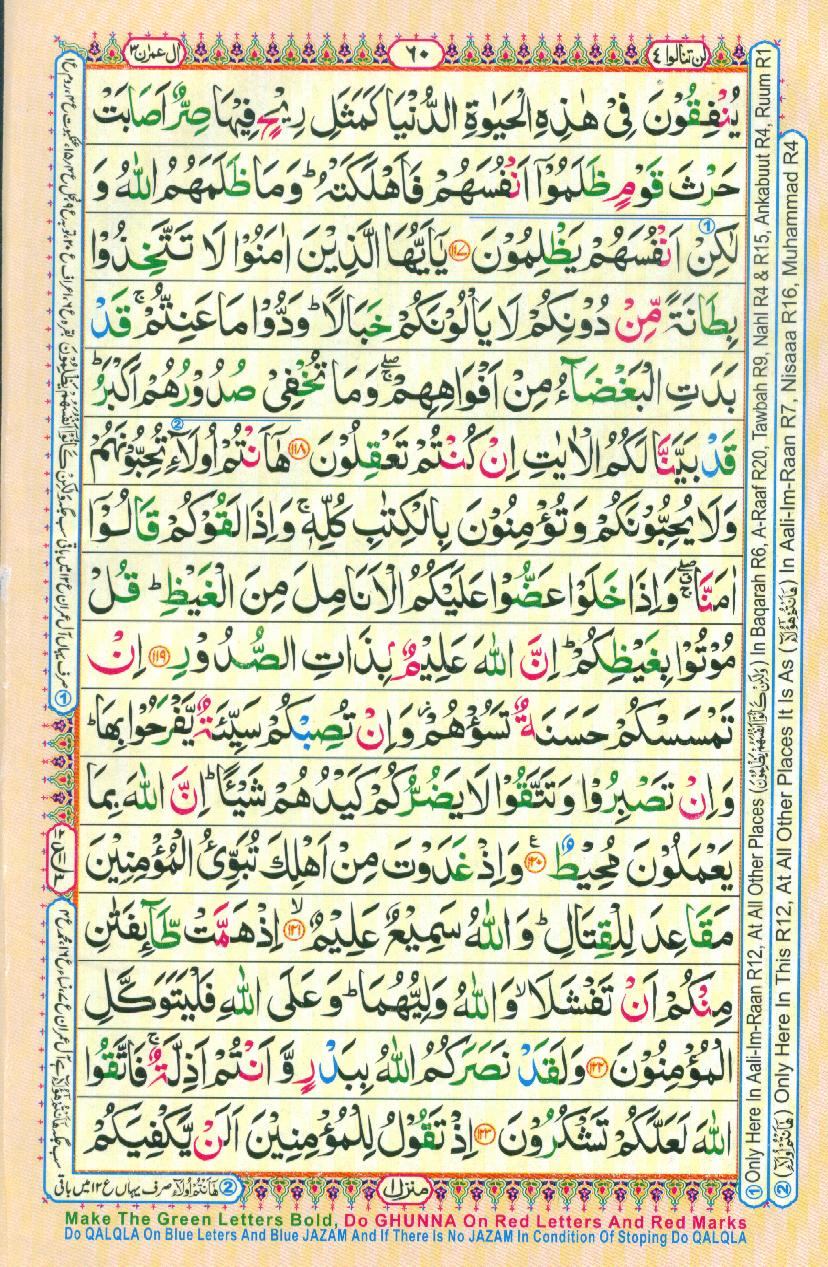 لن تنالوا ٤
٦٠
ال عمرٰن ٣
يُنْفِقُوْنَ فِىْ هٰذِهِ الْحَيٰوةِ الدُّنْيَا كَمَثَلِ رِيْحٍ فِيْهَا صِرٌّ اَصَابَتْ
حَرْثَ قَوْمٍ ظَلَمُوْۤا اَنْفُسَهُمْ فَاَهْلَكَتْهُ ؕ وَمَا ظَلَمَهُمُ اللّٰهُ وَ
لٰكِنْ اَنْفُسَهُمْ يَظْلِمُوْنَ ١١٧ يٰۤاَيُّهَا الَّذِيْنَ اٰمَنُوْا لَا تَتَّخِذُوْا
بِطَانَةً مِّنْ دُوْنِكُمْ لَا يَاْلُوْنَكُمْ خَبَالًا ؕ وَدُّوْا مَا عَنِتُّمْ ۚ قَدْ
بَدَتِ الْبَغْضَآءُ مِنْ اَفْوَاهِهِمْ ۖۚ وَمَا تُخْفِىْ صُدُوْرُهُمْ اَكْبَرُ ؕ
قَدْ بَيَّنَّا لَكُمُ الْاٰيٰتِ اِنْ كُنْتُمْ تَعْقِلُوْنَ ١١٨ هٰۤاَنْتُمْ اُولَآءِ تُحِبُّوْنَهُمْ
وَلَا يُحِبُّوْنَكُمْ وَتُؤْمِنُوْنَ بِالْكِتٰبِ كُلِّهٖ ۚ وَاِذَا لَقُوْكُمْ قَالُوْۤا
اٰمَنَّا ۖۚ وَاِذَا خَلَوْا عَضُّوْا عَلَيْكُمُ الْاَنَامِلَ مِنَ الْغَيْظِ ؕ قُلْ
مُوْتُوْا بِغَيْظِكُمْ ؕ اِنَّ اللّٰهَ عَلِيْمٌۢ بِذَاتِ الصُّدُوْرِ ١١٩ اِنْ
تَمْسَسْكُمْ حَسَنَةٌ تَسُؤْهُمْ ۡ وَاِنْ تُصِبْكُمْ سَيِّئَةٌ يَّفْرَحُوْا بِهَا ؕ
وَاِنْ تَصْبِرُوْا وَتَتَّقُوْا لَا يَضُرُّكُمْ كَيْدُهُمْ شَيْئًا ؕ اِنَّ اللّٰهَ بِمَا
يَعْمَلُوْنَ مُحِيْطٌ ١٢٠ وَاِذْ غَدَوْتَ مِنْ اَهْلِكَ تُبَوِّئُ الْمُؤْمِنِيْنَ
مَقَاعِدَ لِلْقِتَالِ ؕ وَاللّٰهُ سَمِيْعٌ عَلِيْمٌ ١٢١ اِذْ هَمَّتْ طَّآئِفَتٰنِ
مِنْكُمْ اَنْ تَفْشَلَا ۙ وَاللّٰهُ وَلِيُّهُمَا ؕ وَعَلَى اللّٰهِ فَلْيَتَوَكَّلِ
الْمُؤْمِنُوْنَ ١٢٢ وَلَقَدْ نَصَرَكُمُ اللّٰهُ بِبَدْرٍ وَّاَنْتُمْ اَذِلَّةٌ ۚ فَاتَّقُوا
اللّٰهَ لَعَلَّكُمْ تَشْكُرُوْنَ ١٢٣ اِذْ تَقُوْلُ لِلْمُؤْمِنِيْنَ اَلَنْ يَّكْفِيَكُمْ
منزل ١
② هٰۤاَنْتُمْ اُولَآءِ صرف یہاں ع ١٢ میں باقی
① Only Here In Aali-Im-Raan R12, At All Other Places (وَلٰكِنْ كَانُوْۤا اَنْفُسَهُمْ يَظْلِمُوْنَ) In Baqarah R6, A-Raaf R20, Tawbah R9, Nahl R4 & R15, Ankabuut R4, Ruum R1
② (هٰۤاَنْتُمْ اُولَآءِ) Only Here In This R12, At All Other Places It Is As (هٰۤاَنْتُمْ هٰۤؤُلَآءِ) In Aali-Im-Raan R7, Nisaaa R16, Muhammad R4
Make The Green Letters Bold, Do GHUNNA On Red Letters And Red Marks
Do QALQLA On Blue Leters And Blue JAZAM And If There Is No JAZAM In Condition Of Stoping Do QALQLA